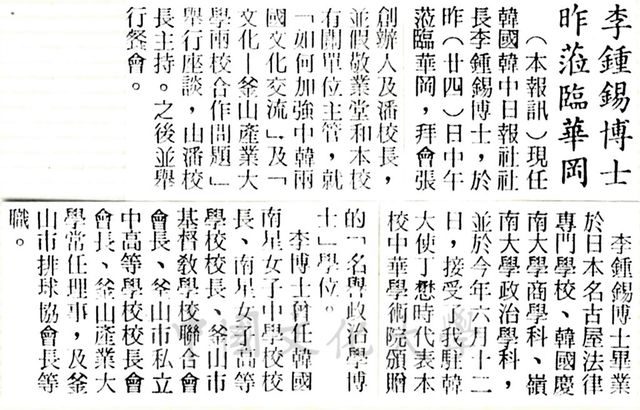 李鍾錫博士
昨蒞臨華岡
（本報訊）現任
韓國韓中日報社社
長李鍾錫博士，於
昨（廿四）日中午
蒞臨華岡，拜會張
創辦人及潘校長，
並假敬業堂和本校
有關單位主管，就
「如何加強中韓兩
國文化交流」及「
文化—釜山產業大
學兩校合作問題」
舉行座談，由潘校
長主持。之後並舉
行餐會。
李鍾錫博士畢業
於日本名古屋法律
專門學校、韓國慶
南大學商學科、嶺
南大學政治學科，
並於今年六月十二
日，接受了我駐韓
大使丁懋時代表本
校中華學術院頒贈
的「名譽政治學博
士」學位。
李博士曾任韓國
南星女子中學校校
長、南星女子高等
學校校長、釜山市
基督教學校聯合會
會長、釜山市私立
中高等學校校長會
會長、釜山產業大
學常任理事，及釜
山市排球協會長等
職。
中國文化大學